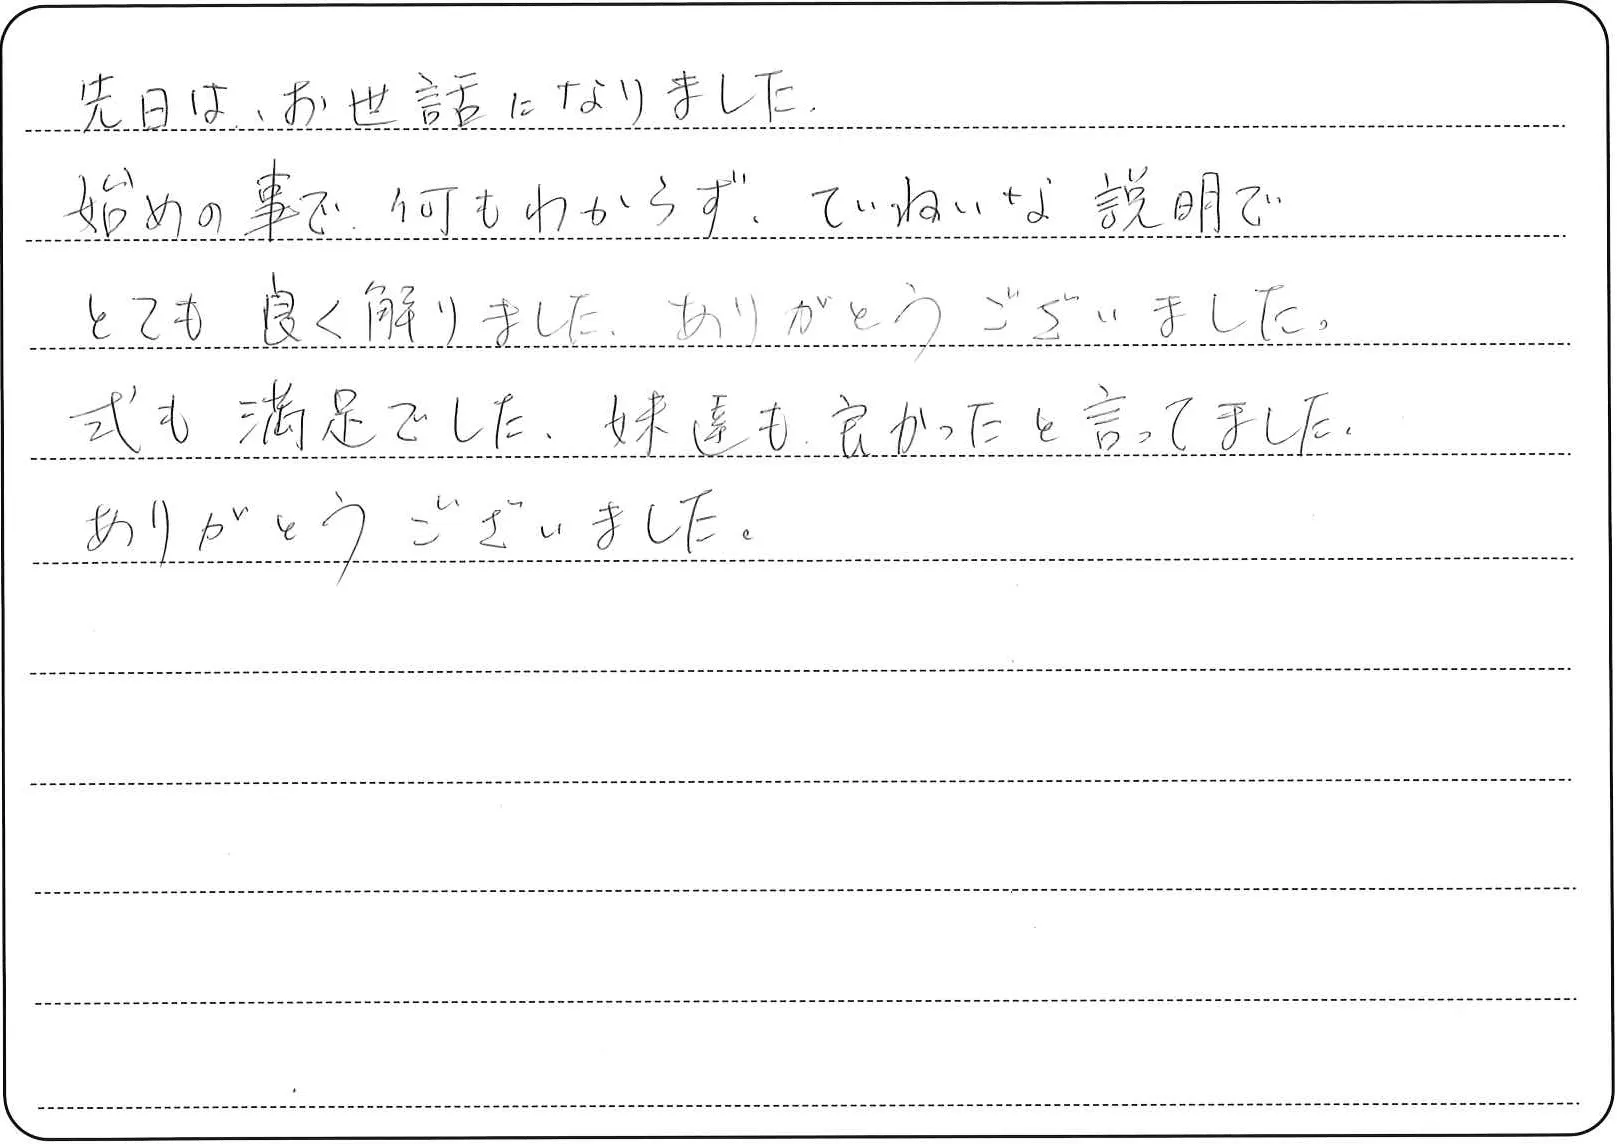 先日は、お世話になりました.
始めの事で 何もわからず、ていねいな 説明で
とても 良く解りました、ありがとうございました。
式も 満足でした、妹達も 良かったと言ってました.
ありがとうございました。